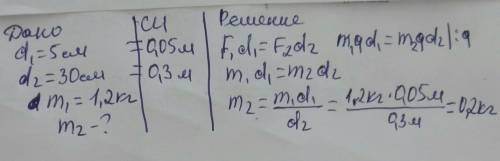 Дано
d₁=5см
d₂=30см
m₁=1,2кг
m₂-?
СИ
=0,05м
=0,3м
Решение
F₁d₁=F₂d₂ m₁gd₁=m₂gd₂|:g
m₁d₁=m₂d₂
m₂=m₁d₁/d₂=1,2кг·0,05м/0,3м=0,2кг